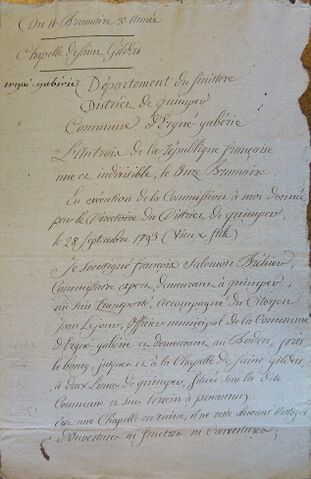 Du 11 Brumaire 3e année
Chapelle de Saint Gildas
ergué gabéric Département du finittere
District de quimper
Commune d'Ergué gabéric
L'an trois de la République française
une et indivisible, le onze Brumaire
En exécution de la Commission à moi donnée
par le Directoire du District de quimper,
le 28 Septembre 1793 (Vieux stile)
Je soussigné françois Salomon Bréhier,
Commissaire expert, demeurant à quimper,
me suis transporté, accompagné du Citoyen
jean Le jour, officier municipal de la Commune
d'Ergué gabéric et demeurant au Bodou, près
le bourg, jusques et à la Chapelle de Saint gildas,
à deux Lieues de quimper, située sur la dite
Commune et sur terrein à
est une Chapelle en ruine, il ne reste
d'ouvertures ni fenetres ni Couvertures;